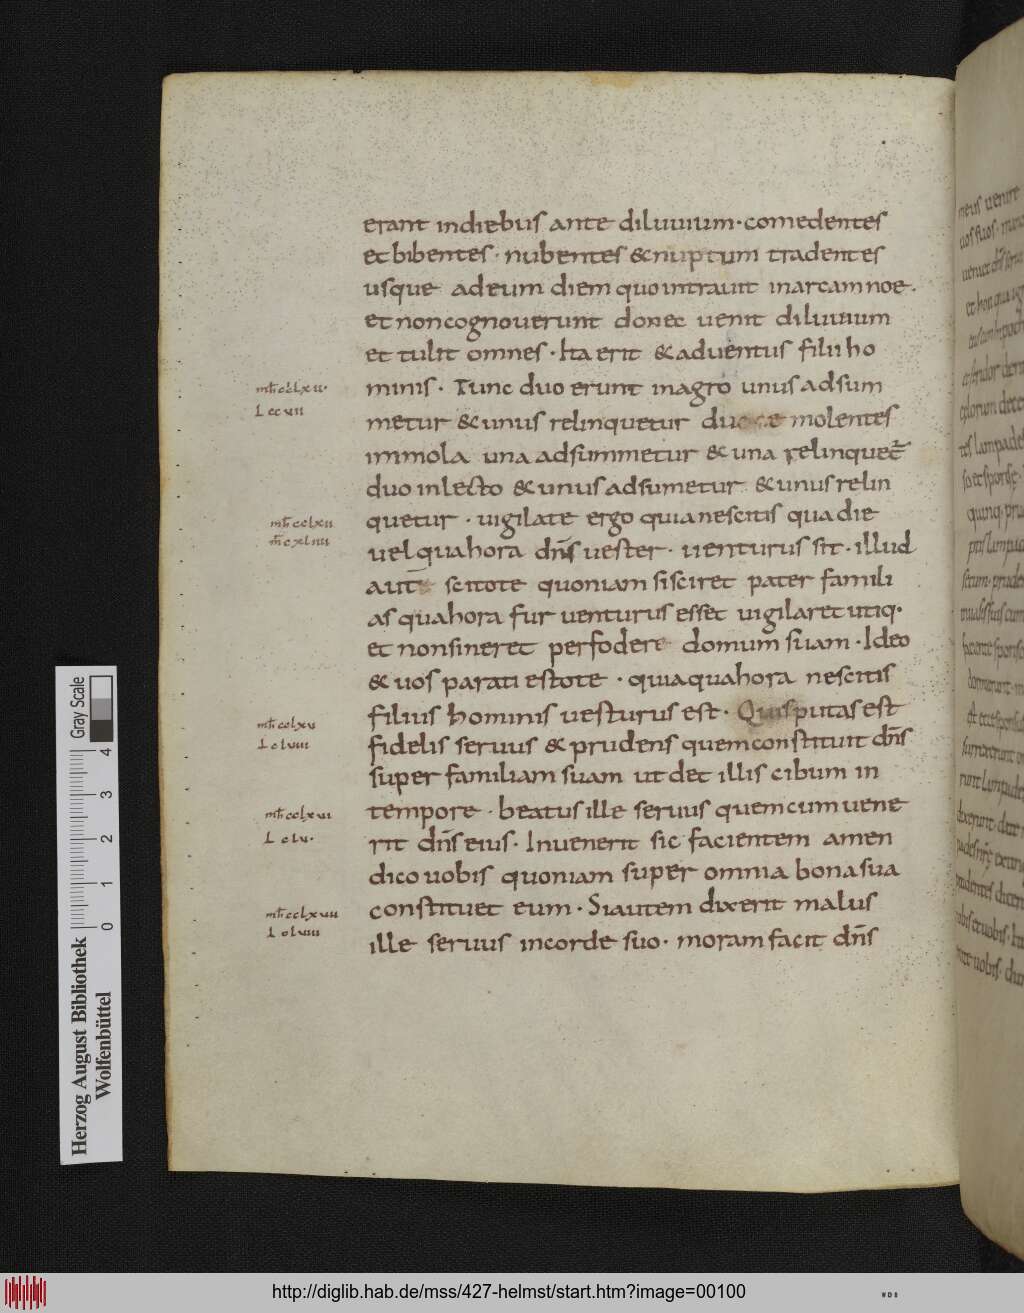 erant indiebus ante diluuium · comedentes
et bibentes · nubentes & nuptum tradentes
usque adeum diem quo intrauit inarcam noe ·
et non cognouerunt donec uenit diluuium
et tulit omnes · Ita erit & aduentus filii ho
mħ cclxii ·
minis · Tunc duo erunt inagro unus adsum
metur & unus relinquetur due molentes
immola una adsummetur & una relinquet̄
duo inlecto & unus adsumetur & unus relin
mħ cclxii
quetur · uigilate ergo quia nescitis qua die
uel qua hora dn̄s uester · uenturus sit · illud
aut̄ scitote quoniam si sciret pater famili
as qua hora fur uenturus esset uigilaret utiq·
et non sineret perfodere domum suam · Ideo
& uos parati estote · quia qua hora nescitis
mħ cclxv
filius hominis uesturus est · Quis putas est
L cluiii
fidelis seruus & prudens quem constituit dn̄s
super familiam suam ut det illis cibum in
mħ cclxvi
tempore · beatus ille seruus quem cum uene
L clv ·
rit dn̄s eius · Inuenerit sic facientem amen
dico uobis quoniam super omnia bona sua
mħ cclxvii
constituet eum · Si autem dixerit malus
L cluiii
ille seruus incorde suo · moram facit dn̄s
Gray Scale
4 3 2 1 0
Herzog August Bibliothek
Wolfenbüttel
http://diglib.hab.de/mss/427-helmst/start.htm?image=00100